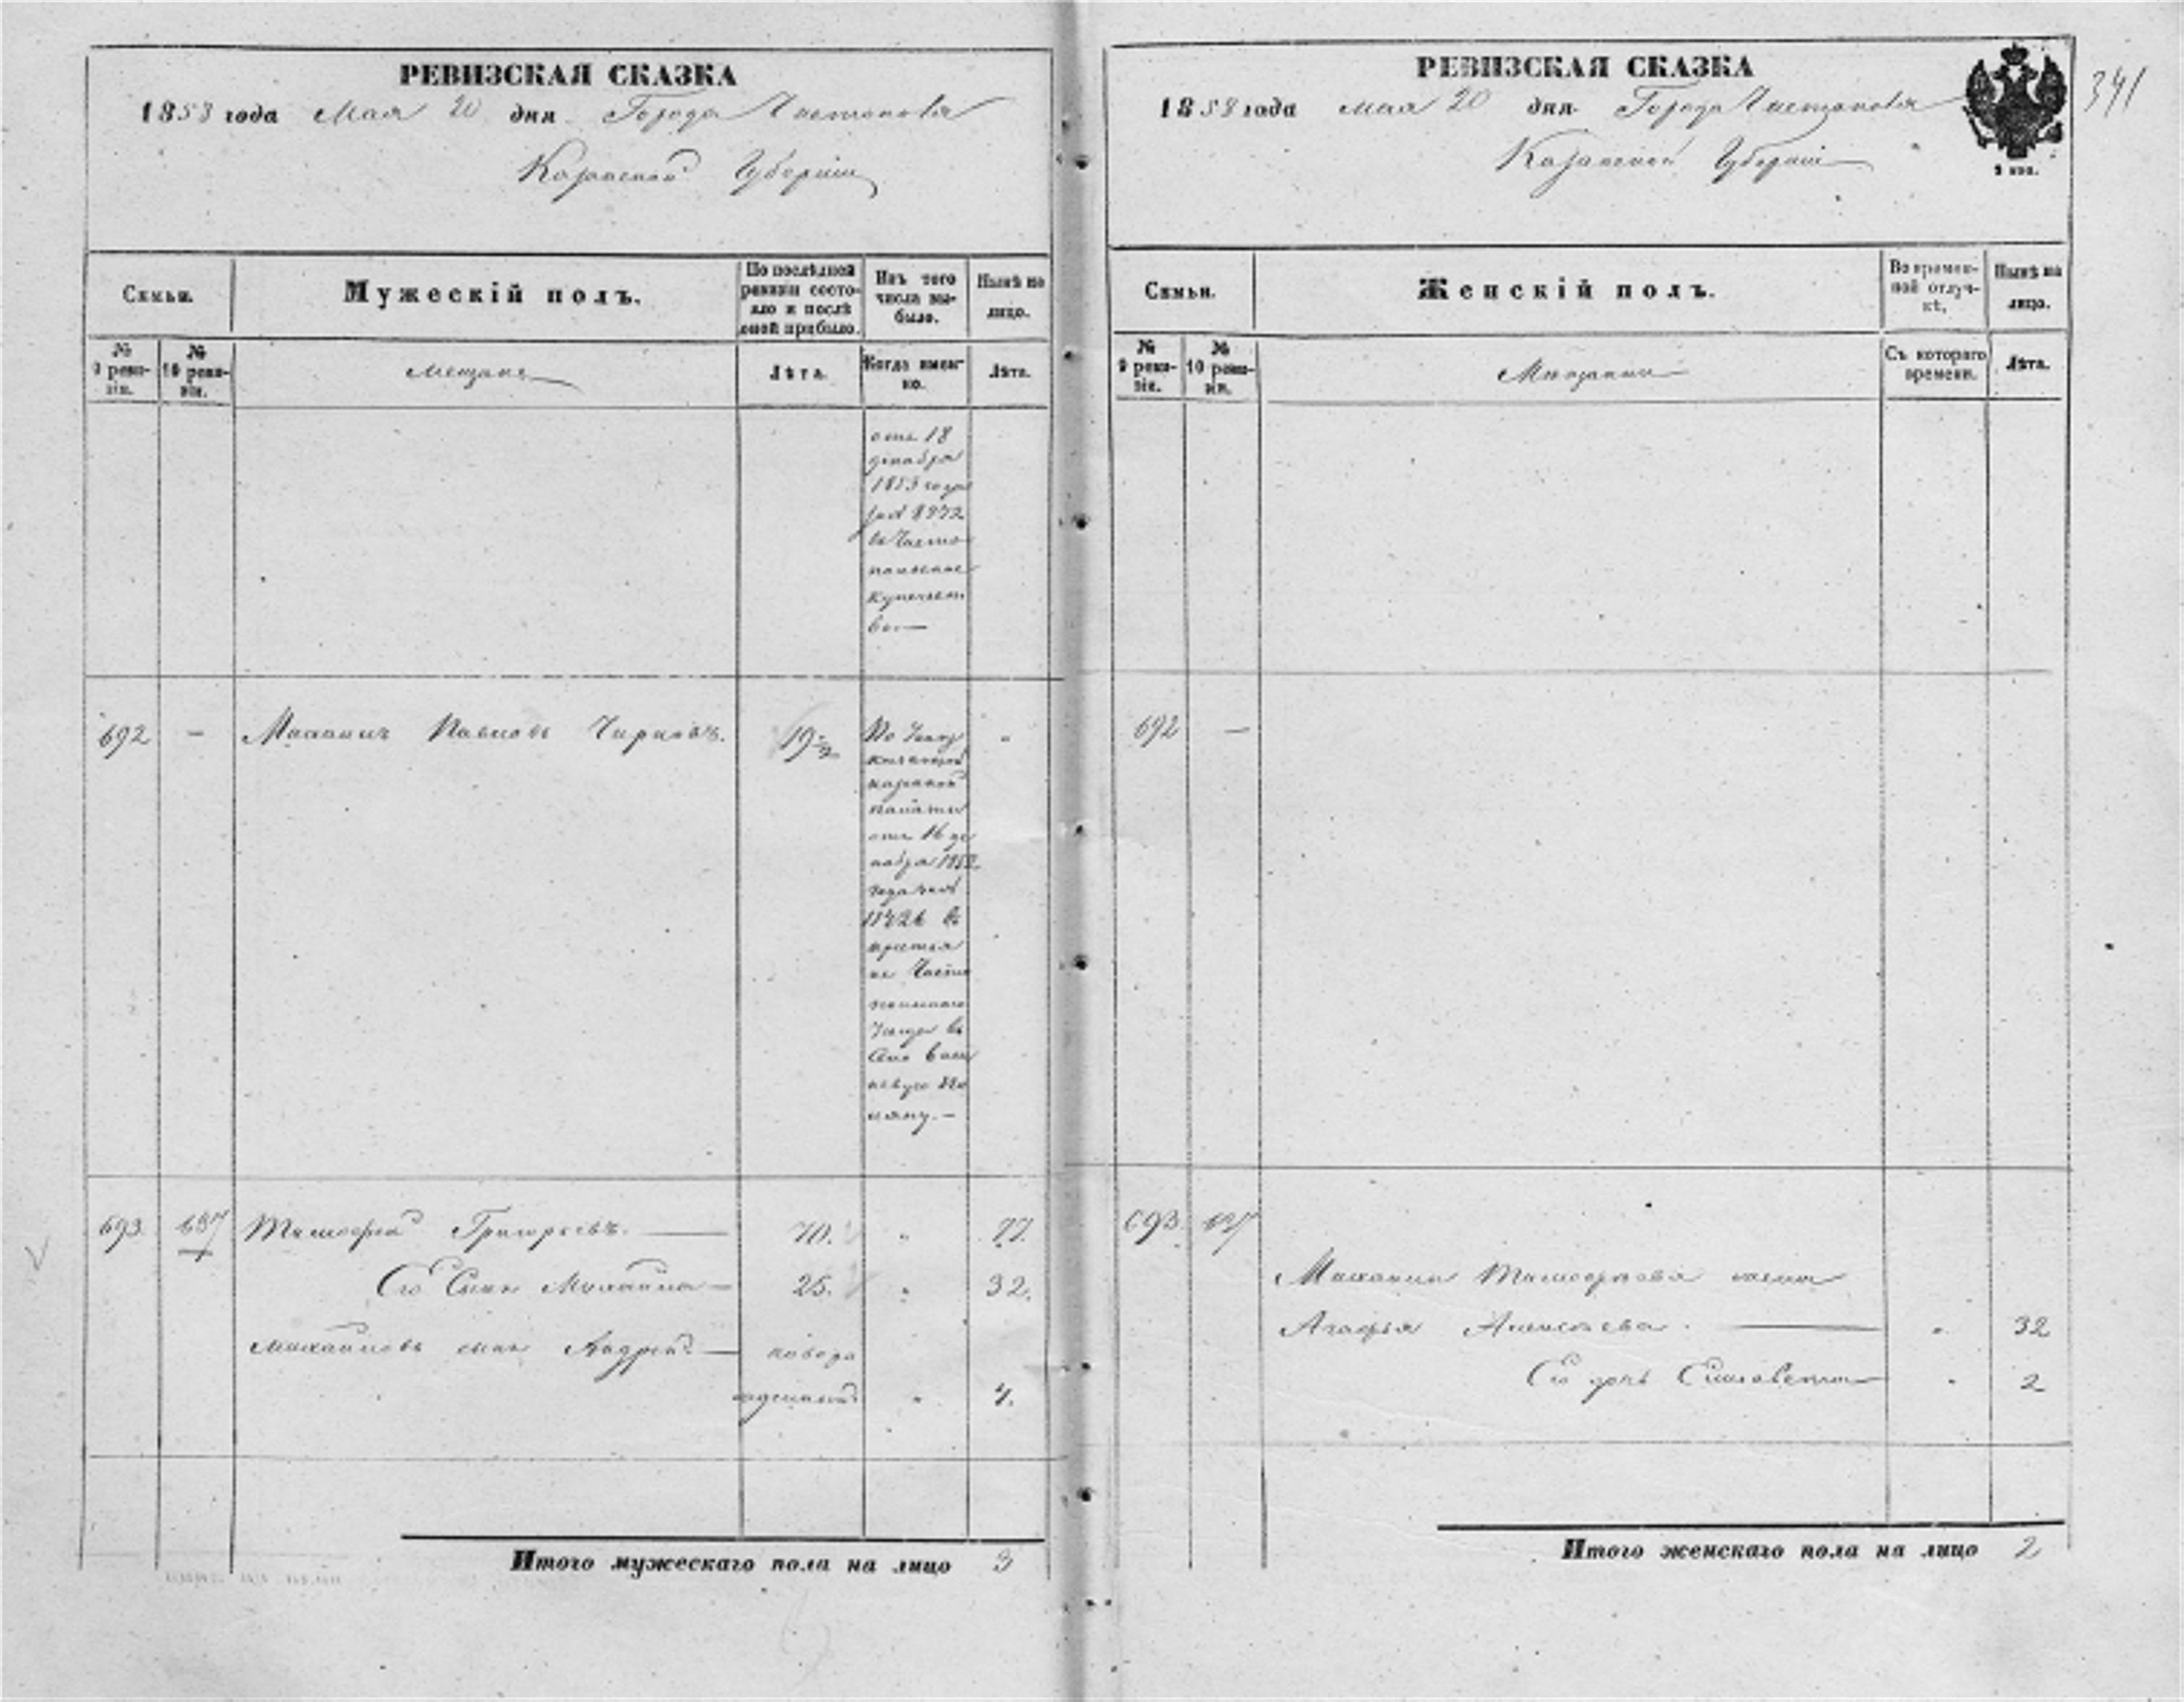 РЕВИЗСКАЯ СКАЗКА
1858 года Мая 20 дня Города Чистополя
Казанской Губерніи
Семьи.
Мужескій полъ.
По послѣдней ревизіи состояло и послѣ оной прибыло.
Изъ того числа выбыло.
Нынѣ на лицо.
№ 9 ревизіи.
№ 10 ревизіи.
Мещане
Лѣта.
Когда именно.
Лѣта.
отъ 18
декабря
1853 года
за № 8272
въ Чисто
польское
купечест
во
692 — Михаилъ Павловъ Чириковъ. 19
По Указу
Казанской
казенной
палаты
отъ 16 де
кабря 1852
года за №
11426 въ
крестья
не Чисто
польскаго
Уезда въ
693 687 Тимофей Григорьевъ. — 70. " 77.
Его Сынъ Михаила — 25. " 32.
Михайловъ сынъ Андрей — новоро
жденный " 4.
Итого мужескаго пола на лицо 3
РЕВИЗСКАЯ СКАЗКА
1858 года мая 20 дня Города Чистополя
Казанской Губерніи
341
Семьи.
Женскій полъ.
Во временной отлучкѣ.
Нынѣ на лицо.
№ 9 ревизіи.
№ 10 ревизіи.
Мещанки
Съ котораго времени.
Лѣта.
692 —
693. 687
Михаила Тимофеева жена
Агафья Алексеева. — " 32
Его дочь Елизавета — " 2
Итого женскаго пола на лицо 2